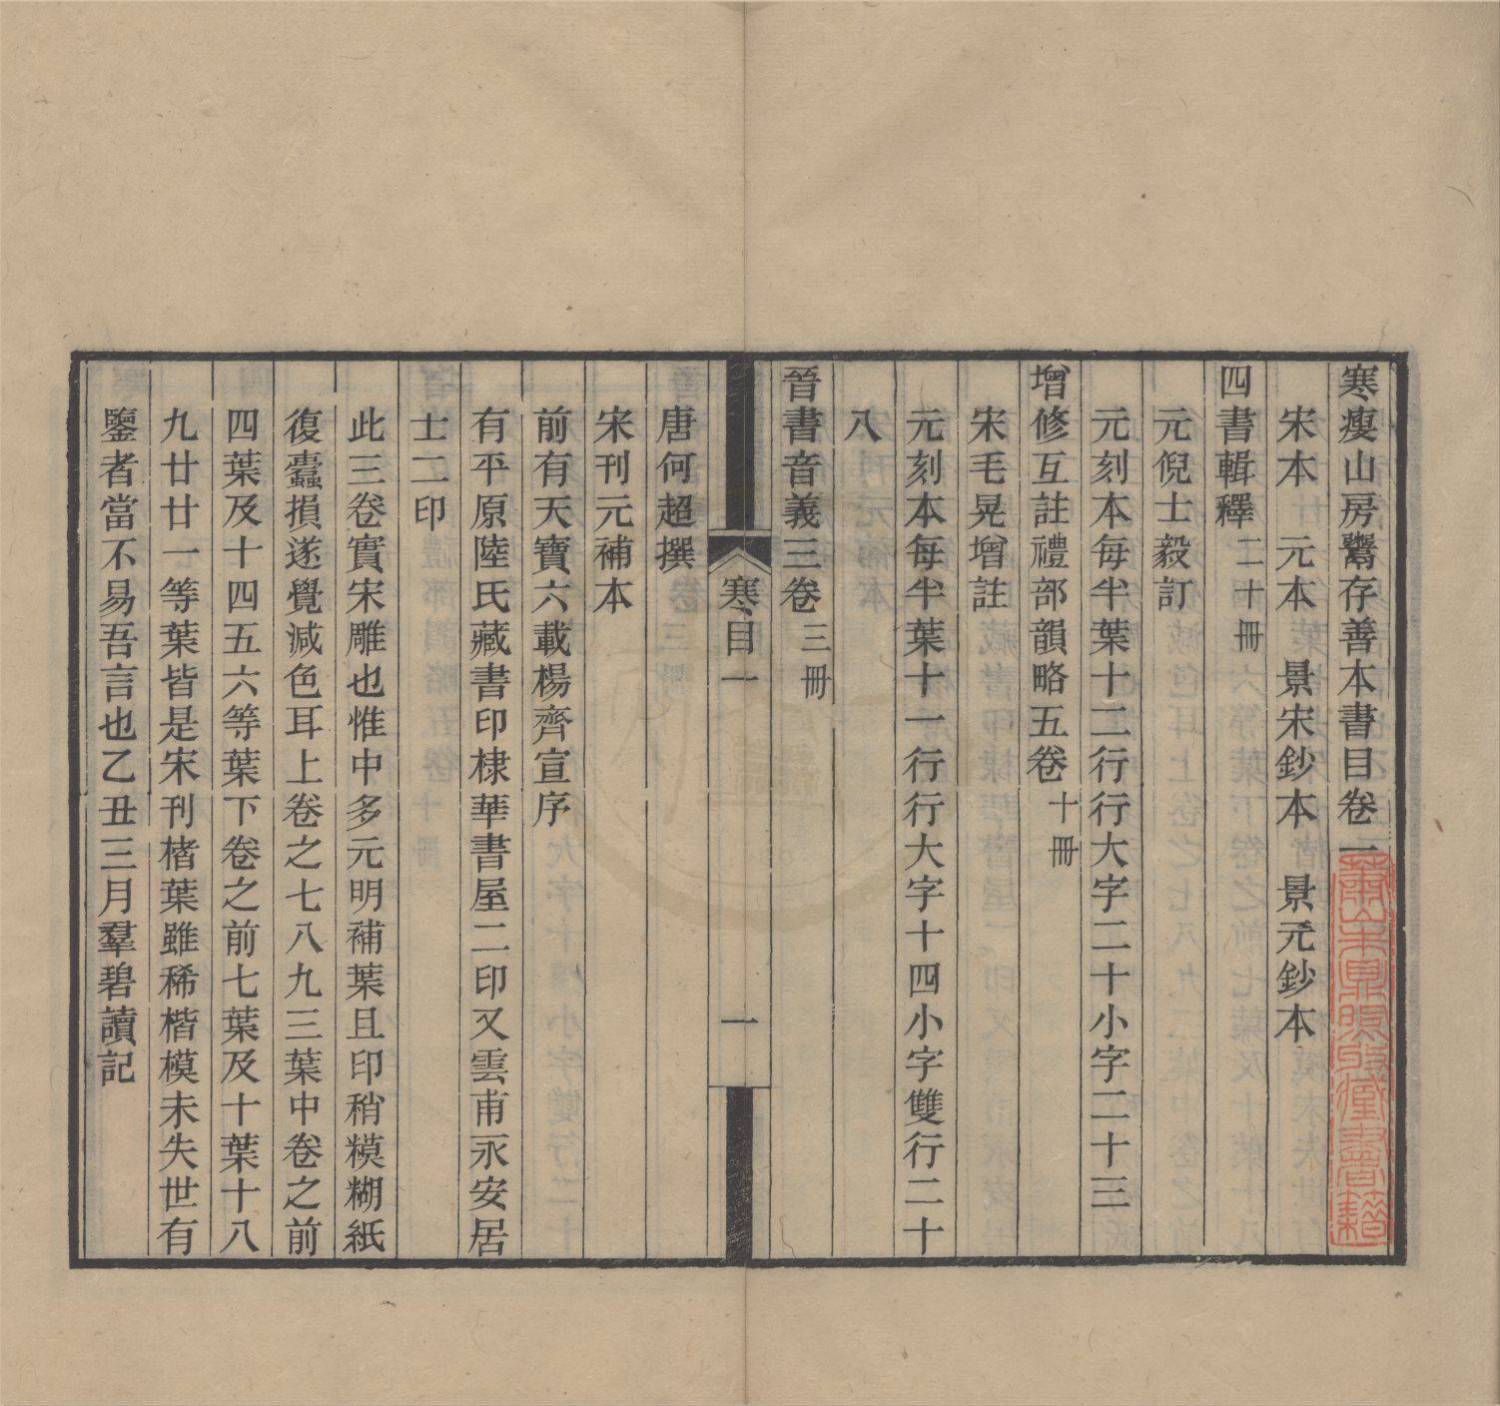 寒瘦山房鬻存善本書目卷一
宋本　元本　景宋鈔本　景元鈔本
四書輯釋二十冊
元倪士毅訂
元刻本每半葉十二行行大字二十小字二十三
增修互註禮部韻略五卷十冊
宋毛晃增註
元刻本每半葉十一行行大字十四小字雙行二十
八
晉書音義三卷三冊
寒目一
一
唐何超撰
宋刊元補本
前有天寶六載楊齊宣序
有平原陸氏藏書印棣華書屋二印又雲甫永安居
士二印
此三卷實宋雕也惟中多元明補葉且印稍糢糊紙
復蠹損遂覺減色耳上卷之七八九三葉中卷之前
四葉及十四五六等葉下卷之前七葉及十葉十八
九廿廿一等葉皆是宋刊楮葉雖稀楷模未失世有
鑒者當不易吾言也乙丑三月羣碧讀記
蕭山朱鼎煦收藏書籍